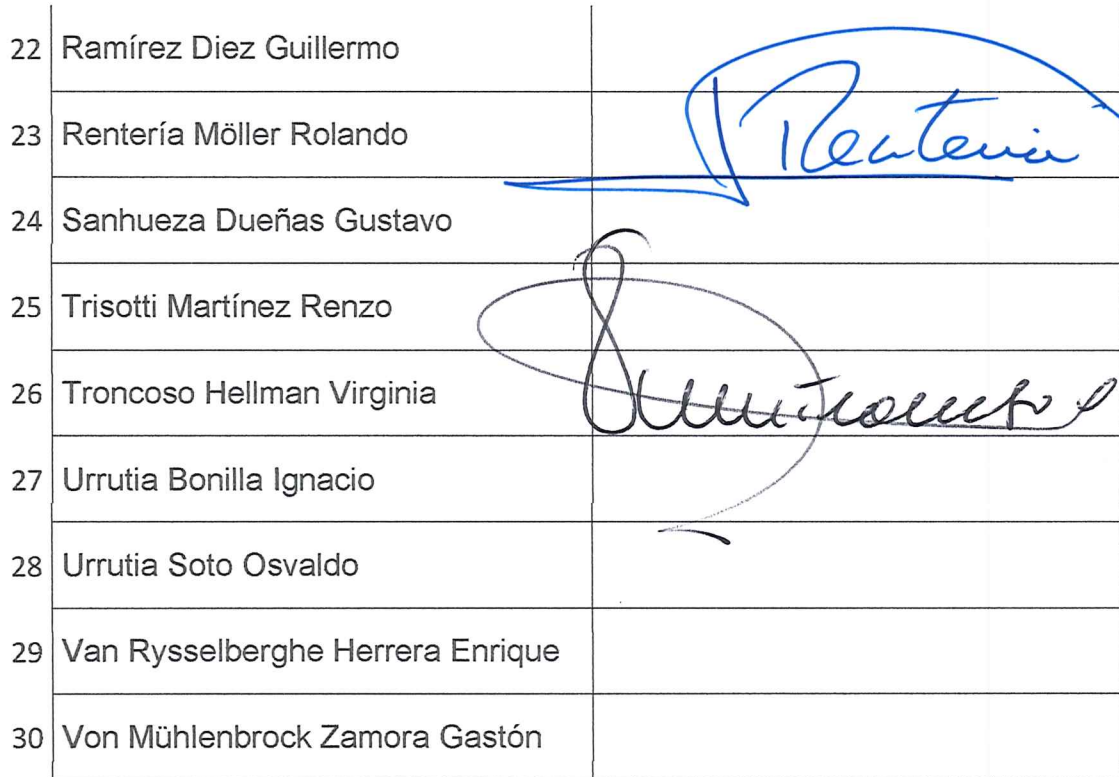 22 Ramírez Diez Guillermo
23 Rentería Möller Rolando Renteria
24 Sanhueza Dueñas Gustavo
25 Trisotti Martínez Renzo
26 Troncoso Hellman Virginia
27 Urrutia Bonilla Ignacio
28 Urrutia Soto Osvaldo
29 Van Rysselberghe Herrera Enrique
30 Von Mühlenbrock Zamora Gastón